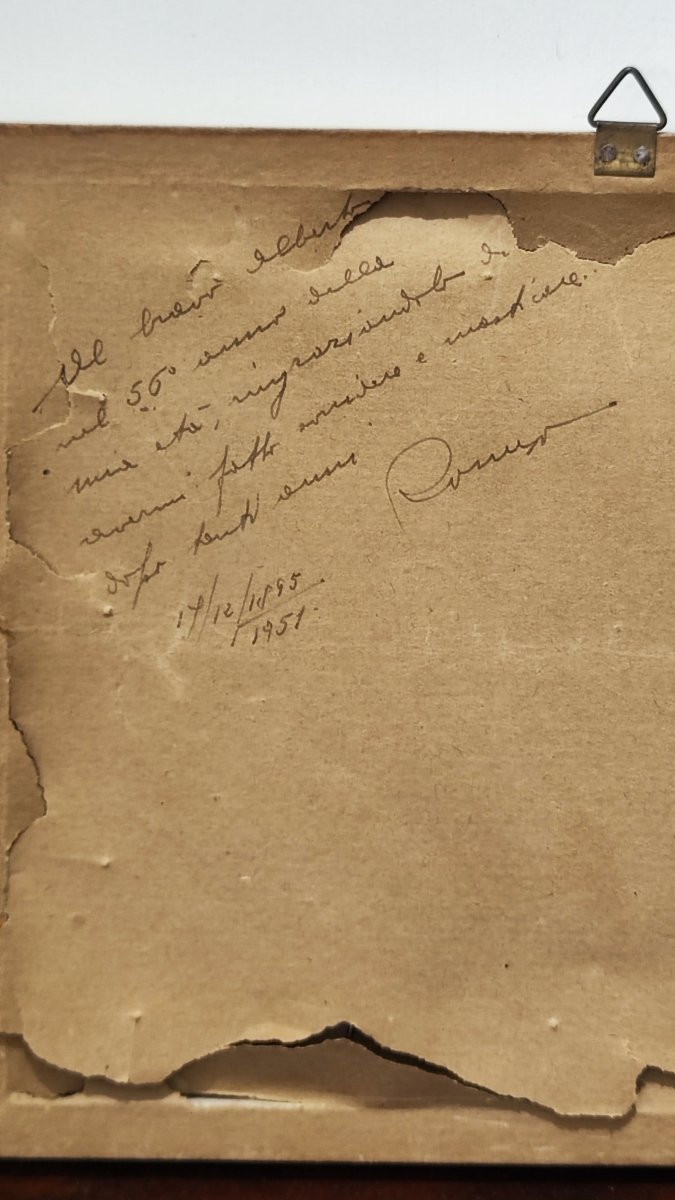 Al bravo Alberto
nel 56° anno della
mia età, ringraziandolo di
avermi fatto sorridere e masticare..
dopo tanti anni.
Romeo
14/12/1895
1951.